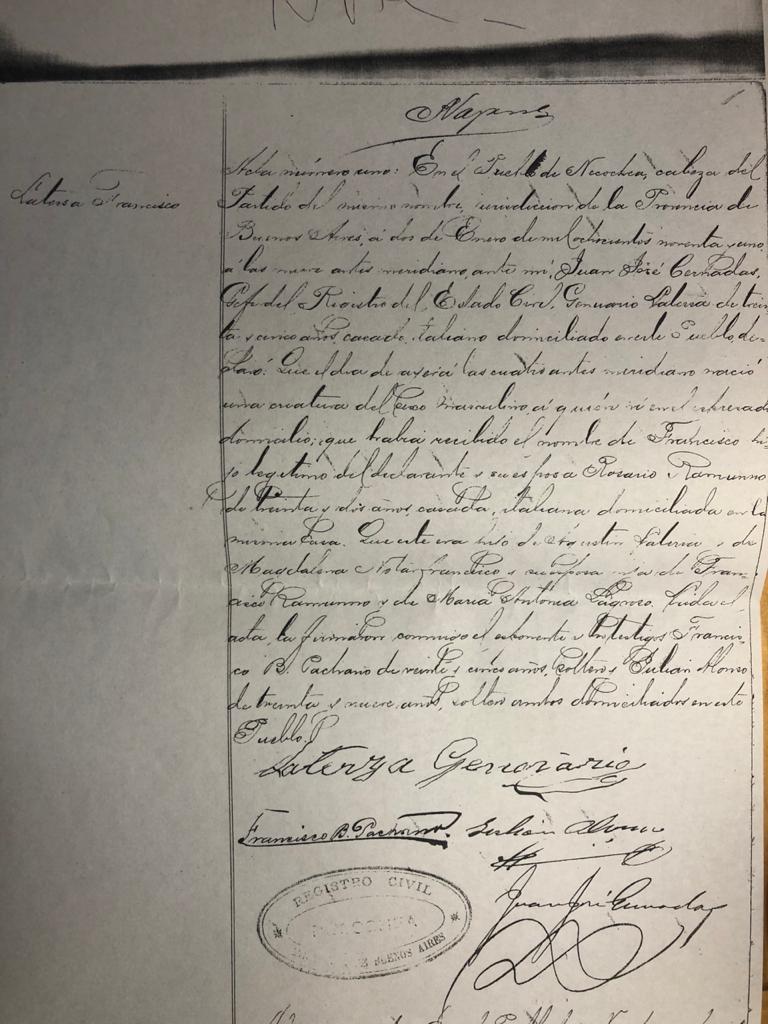 Latersa Francisco
Acta número uno: En el Pueblo de Necochea, cabeza del
Partido del mismo nombre, jurisdiccion de la Provincia de
Buenos Aires, á dos de Enero de mil ochocientos noventa y uno,
á las nueve antes meridiano, ante mí, Juan José Cernadas,
Gefe del Registro del Estado Civil, Genuario Latersa de trein-
ta y cinco años, casado, italiano domiciliado en este Pueblo, de-
claró: Que el dia de ayer á las cuatro antes meridiano nació
una creatura del sexo masculino, á quien vi en el espresado
domicilio; que habia recibido el nombre de Francisco hi-
jo legítimo del declarante y su esposa Rosario Ramunno
de treinta y dos años, casada, italiana domiciliada en la
misma casa. Que este era hijo de Agustin Latersa y de
Magdalena Notarfrancisco y su esposa hija de Fran-
cisco Ramunno y de María Antonia Lagroso. Leida el
acta, la firmaron conmigo el esponente y los testigos Francis-
co B. Pachano de veinte y cinco años, soltero y Julian Alonso
de treinta y nueve años, soltero ambos domiciliados en este
Pueblo.
Laterza Genorario
Francisco B. Pachano. Julian Alonso
REGISTRO CIVIL
NECOCHEA
DE BUENOS AIRES
Juan José Cernadas